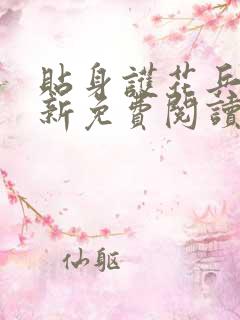 貼身護花兵
新免費閱讀
仙躯